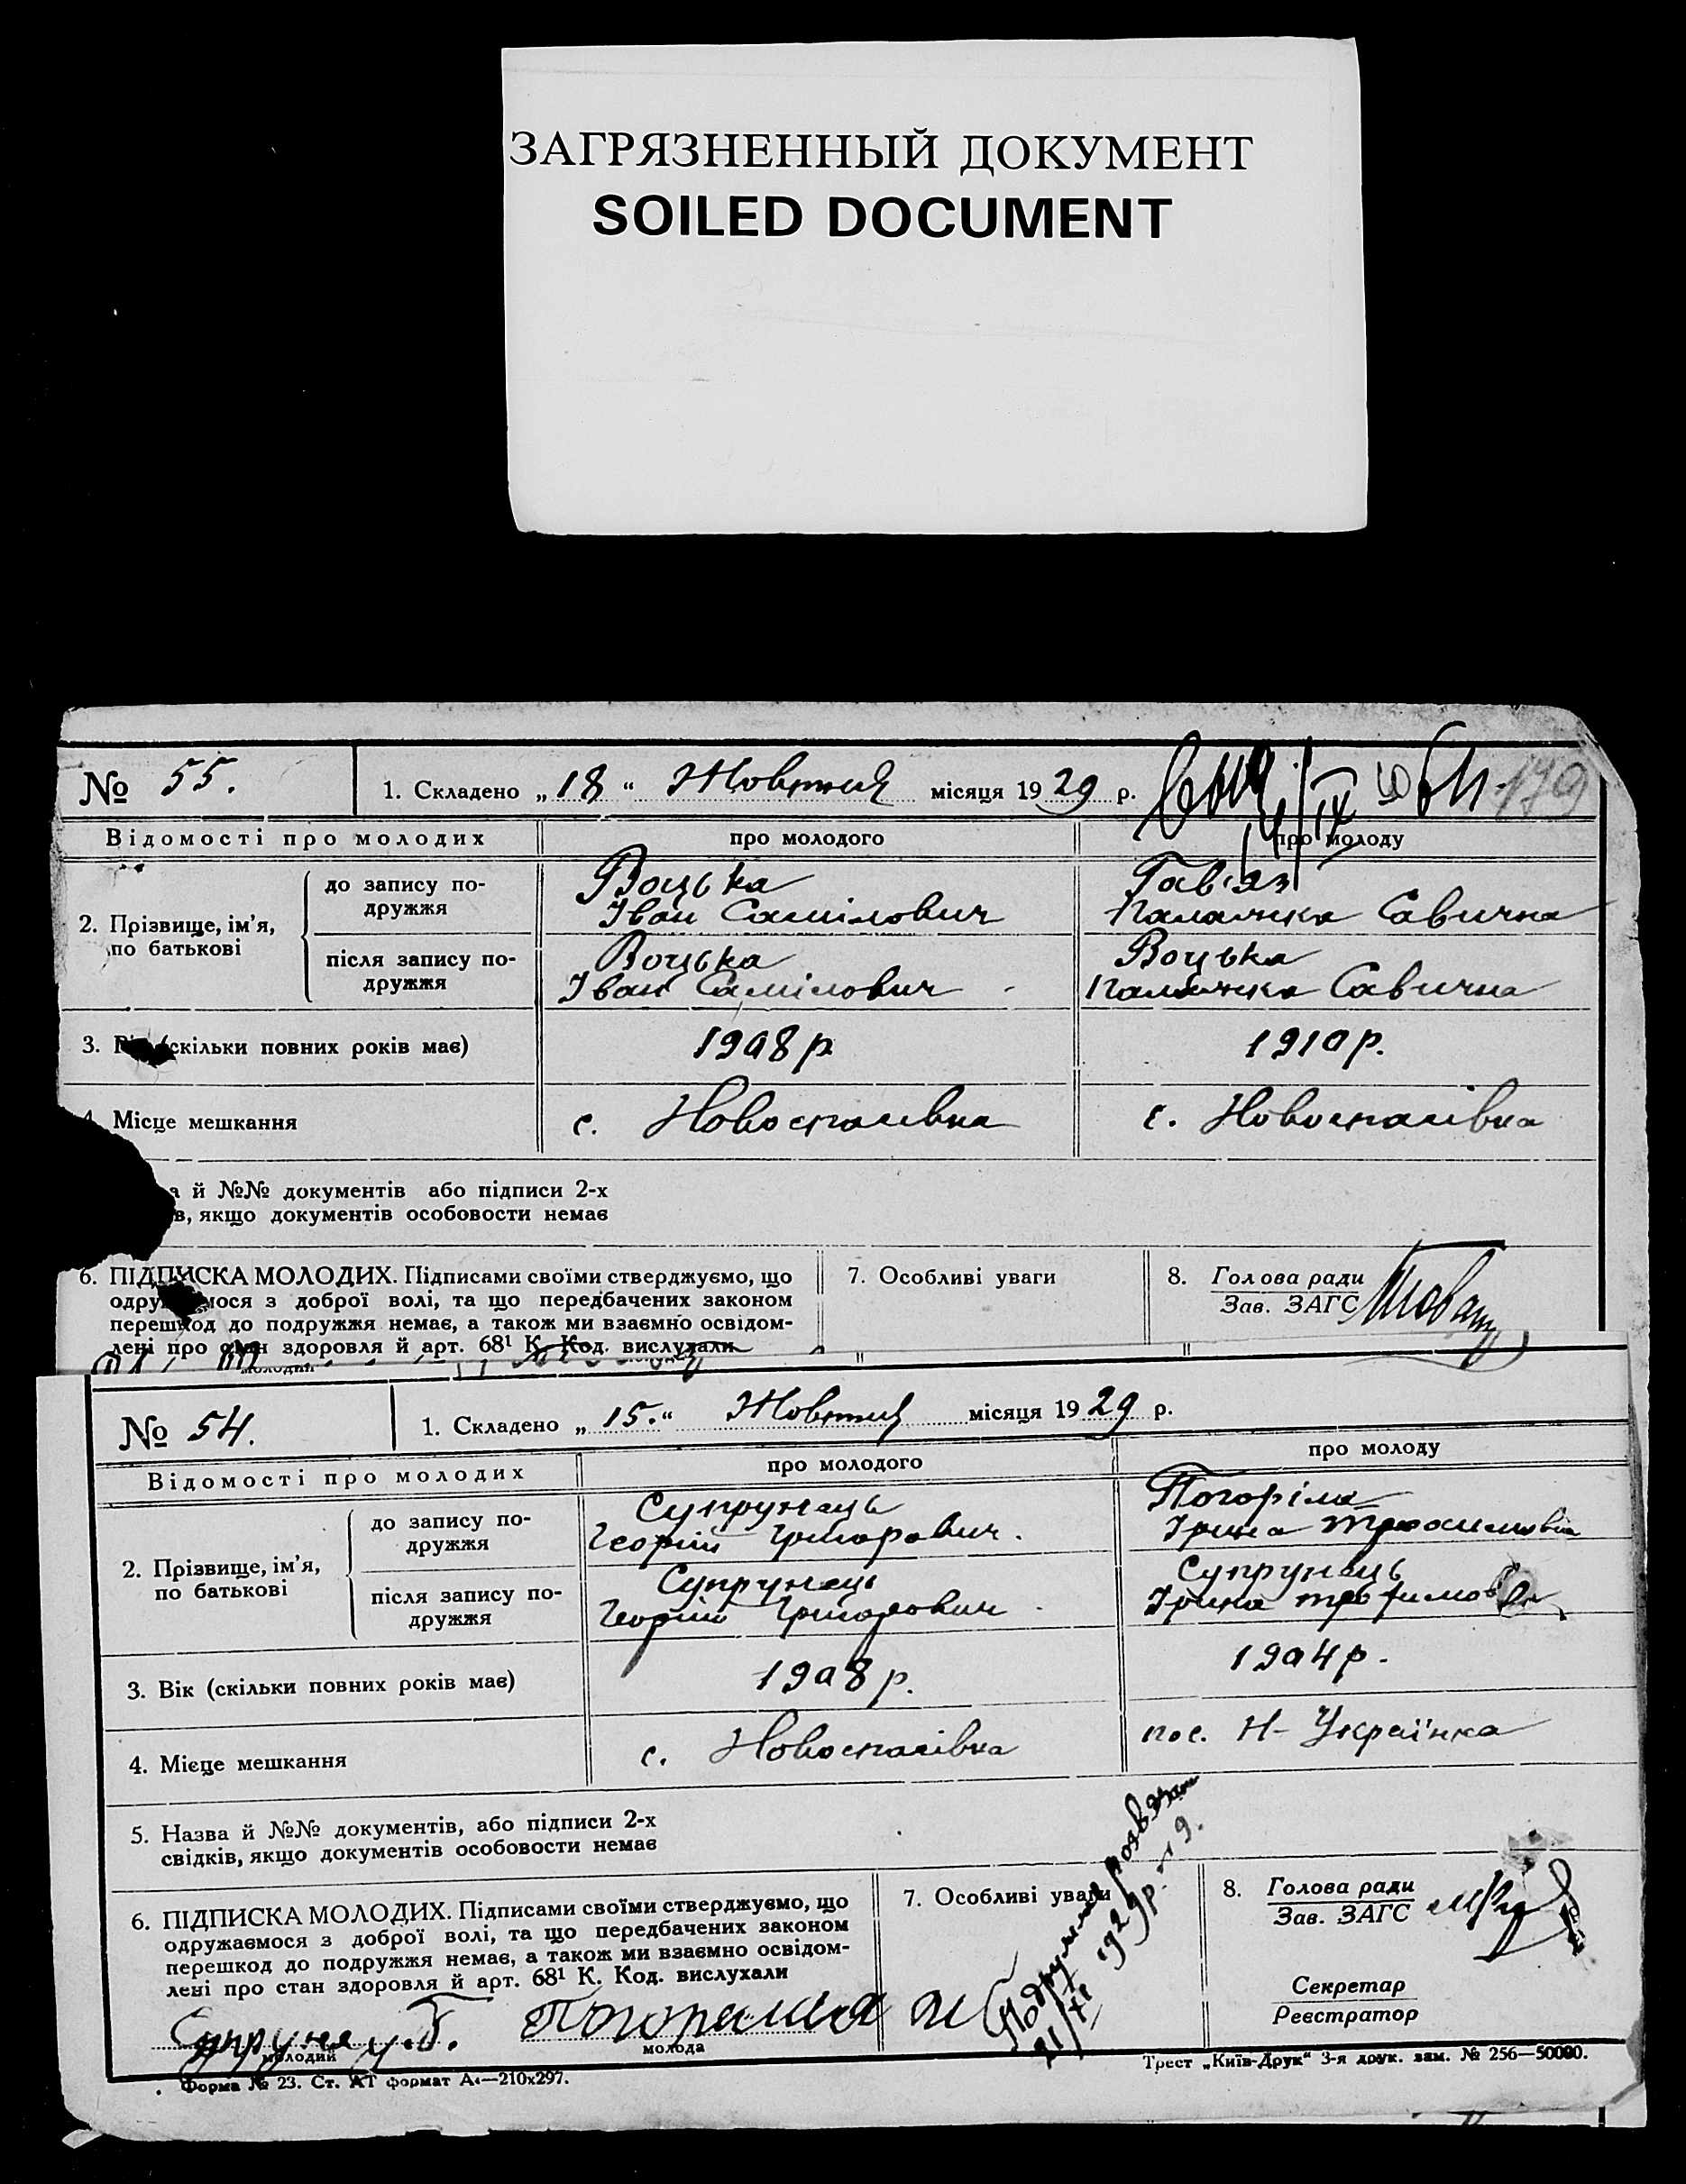 ЗАГРЯЗНЕННЫЙ ДОКУМЕНТ
SOILED DOCUMENT
№ 55. 1. Складено „18“ Жовтня місяця 1929 р. 179
Відомості про молодих про молодого про молоду
2. Прізвище, ім'я, по батькові
до запису подружжя
Воцька
Іван Самілович
Гав'яз
Палажка Савична
після запису подружжя
Воцька
Іван Самілович
Воцька
Палажка Савична
3. (скільки повних років має) 1908 р 1910 р.
4. Місце мешкання с. Новоспасівка с. Новоспасівка
й №№ документів або підписи 2-х
якщо документів особовости немає
6. ПІДПИСКА МОЛОДИХ. Підписами своїми стверджуємо, що
з доброї волі, та що передбачених законом
перешкод до подружжя немає, а також ми взаємно освідом-
лені про стан здоровля й арт. 68¹ К. Код. вислухали
молодий
7. Особливі уваги
8. Голова ради
Зав. ЗАГС
№ 54. 1. Складено „15.“ Жовтня місяця 1929 р.
Відомості про молодих про молодого про молоду
2. Прізвище, ім'я, по батькові
до запису подружжя
Супрунець
Георгій Григорович.
Погоріла
Ірина
після запису подружжя
Супрунець
Георгій Григорович
Супрунець
Ірина
3. Вік (скільки повних років має) 1908 р. 1904 р.
4. Місце мешкання с. Новоспасівка пос. Н-Українка
5. Назва й №№ документів, або підписи 2-х
свідків, якщо документів особовости немає
6. ПІДПИСКА МОЛОДИХ. Підписами своїми стверджуємо, що
одружаємося з доброї волі, та що передбачених законом
перешкод до подружжя немає, а також ми взаємно освідом-
лені про стан здоровля й арт. 68¹ К. Код. вислухали
молодий
молода
7. Особливі уваги
21/XI 1929 р. № 9.
8. Голова ради
Зав. ЗАГС
Секретар
Реєстратор
Форма № 23. Ст. АТ формат А₄—210х297.
Трест „Київ-Друк“ 3-я друк. зам. № 256—50000.